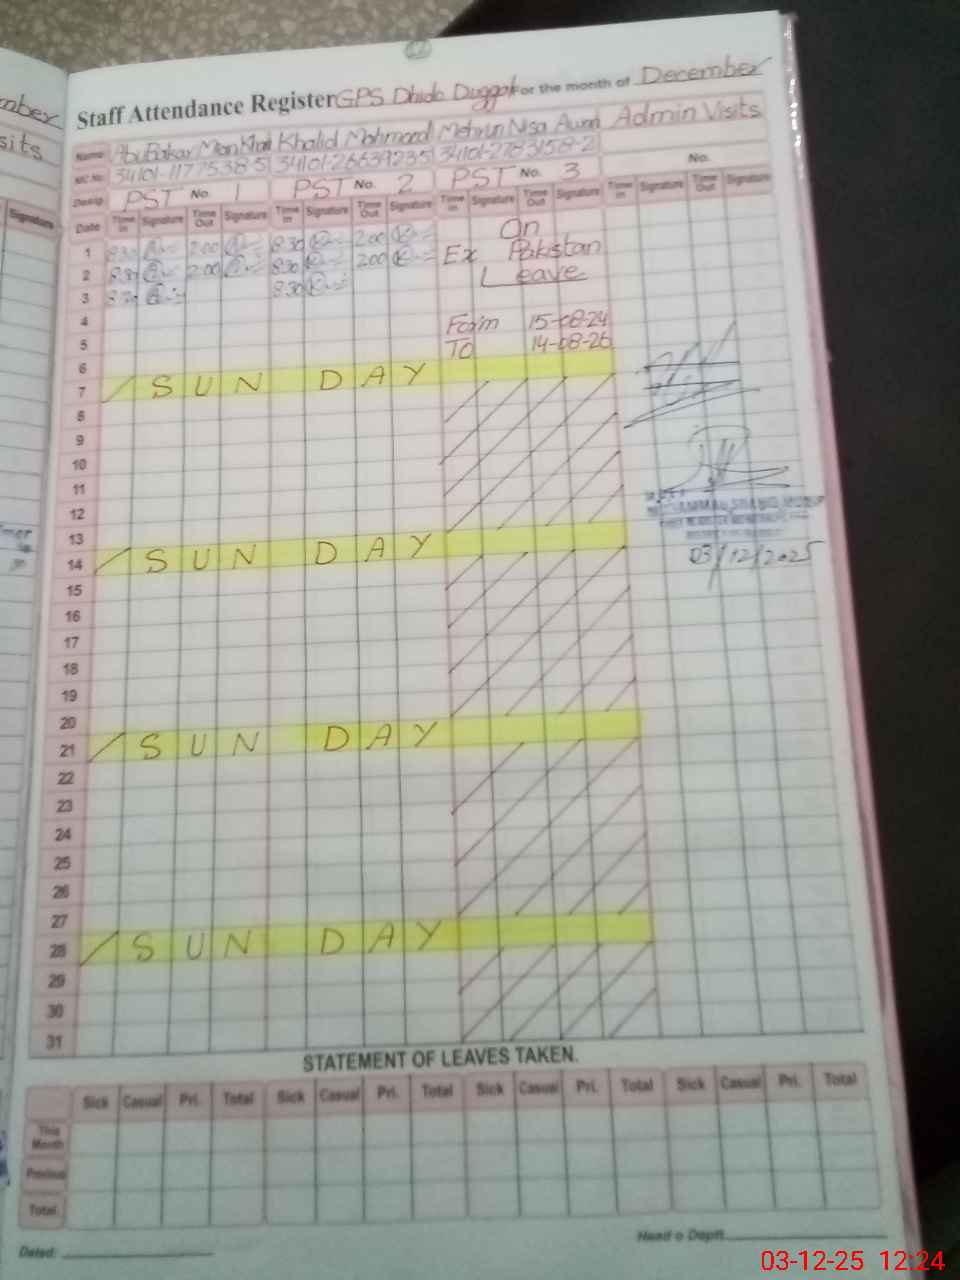 Staff Attendance Register GPS Dhido Duggal For the month of December
Name Abu Bakar Man Khalid Mahmood Mehrun Nisa Awan Admin Visits
NIC No. 34101-2783158-2
Desig. PST No. 1 PST No. 2 PST No. 3 No.
Date Time In Signature Time Out Signature Time In Signature Time Out Signature Time In Signature Time Out Signature Time In Signature Time Out Signature
1 8:30 2:00 8:30 2:00 On
2 8:30 2:00 8:30 2:00 Ex Pakistan
3 8:30 8:30 Leave
4 Form 15-08-24
5 To 14-08-26
6
7 SUN DAY
8
9
10
11
12
13
14 SUN DAY
03/12/2025
15
16
17
18
19
20
21 SUN DAY
22
23
24
25
26
27
28 SUN DAY
29
30
31
STATEMENT OF LEAVES TAKEN.
Sick Casual Pri. Total Sick Casual Pri. Total Sick Casual Pri. Total Sick Casual Pri. Total
This Month
Previous
Total
Dated:
Head o Deptt
03-12-25 12:24